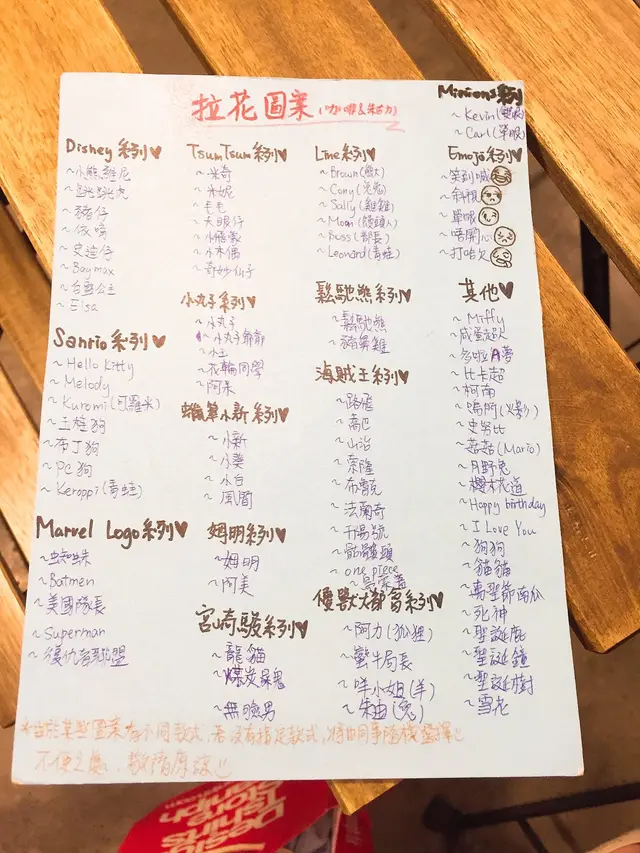 拉花圖案(咖啡&朱古力)
Disney系列♥
~小熊維尼
~跳跳虎
~豬仔
~史迪仔
~Baymax
~白雪公主
~Elsa
Sanrio系列♥
~Hello Kitty
~Melody
~Kuromi(可羅米)
~玉桂狗
~布丁狗
~PC狗
~Keroppi(青蛙)
Marvel Logo系列♥
~蜘蛛
~Batmen
~美國隊長
~Superman
~復仇者聯盟
TsumTsum系列♥
~米奇
~米妮
~毛毛
~大眼仔
~小飛象
~小木偶
~奇妙仙子
小丸子系列♥
~小丸子
~小丸子爺爺
~小玉
~花輪同學
~阿呆
蠟筆小新系列♥
~小新
~小葵
~小白
~風間
姆明系列♥
~姆明
~阿美
宮崎駿系列♥
~龍貓
~煤炭屎鬼
~無臉男
Line系列♥
~Brown(熊大)
~Cony(兔兔)
~Sally(雞雞)
~Moon(饅頭人)
~Boss(部長)
~Leonard(青蛙)
鬆馳熊系列♥
~鬆馳熊
~豬鼻雞
海賊王系列♥
~路飛
~喬巴
~山治
~索隆
~布魯克
~法蘭奇
~千陽號
~骷髏頭
~one piece
優獸大都會系列♥
~阿力(狐狸)
~蠻牛局長
~咩小姐(羊)
~朱迪(兔)
Minions系列
~Kevin(雙眼)
~Carl(單眼)
Emoji系列♥
~笑到喊
~斜視
~單眼
~唔開心
~打哈欠
其他♥
~Miffy
~咸蛋超人
~多啦A夢
~比卡超
~柯南
~鳴門(火影)
~史努比
~菇菇(Mario)
~月野兔
~櫻木花道
~Happy birthday
~I Love You
~狗狗
~貓貓
~萬聖節南瓜
~死神
~聖誕鹿
~聖誕鐘
~聖誕樹
~雪花
*由於某些圖案有不同款式,若沒有指定款式,將由同事隨機選擇
不便之處,敬請原諒